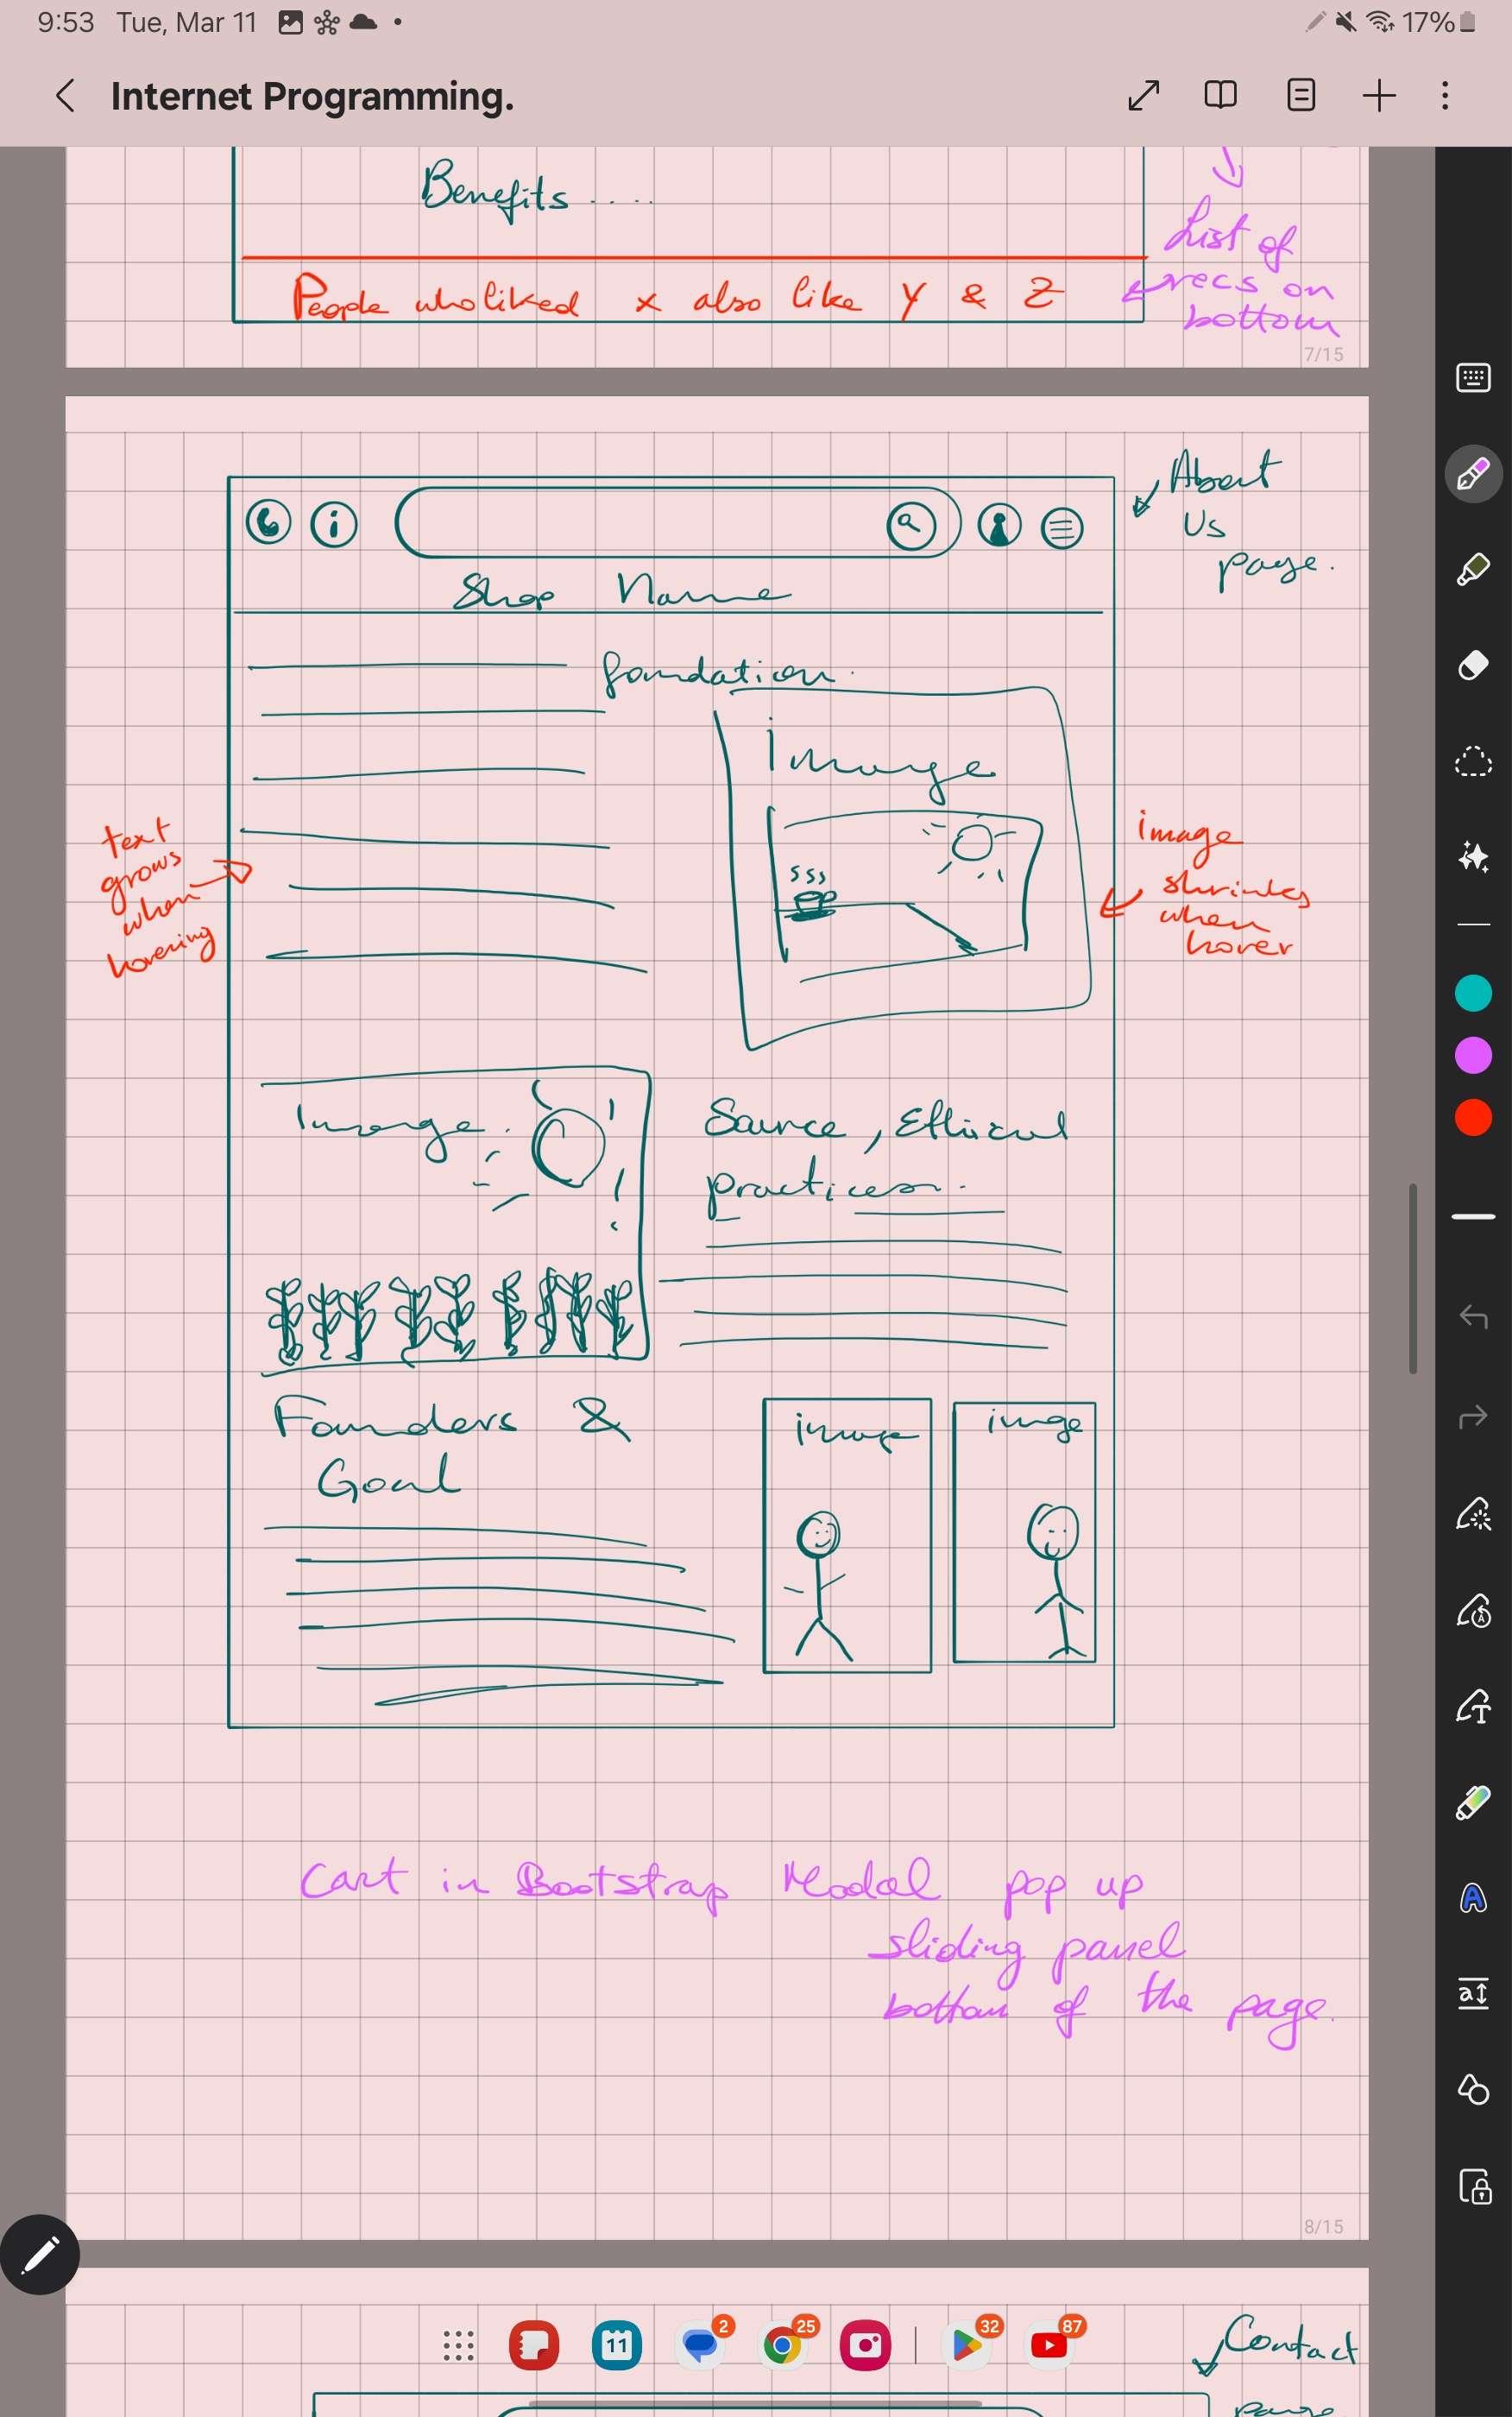 9:53 Tue, Mar 11
17%
Internet Programming.
Benefits ....
List of
recs on
bottom
People who liked x also like Y & Z
7/15
About
Us
page.
Shop Name
foundation.
Image
text
grows
when
hovering
image
shrinks
when
hover
Image.
Source, Ethical
practices.
Founders &
Goal
image
image
Cart in Bootstrap Modal pop up
sliding panel
bottom of the page.
8/15
11
2
25
32
87
Contact